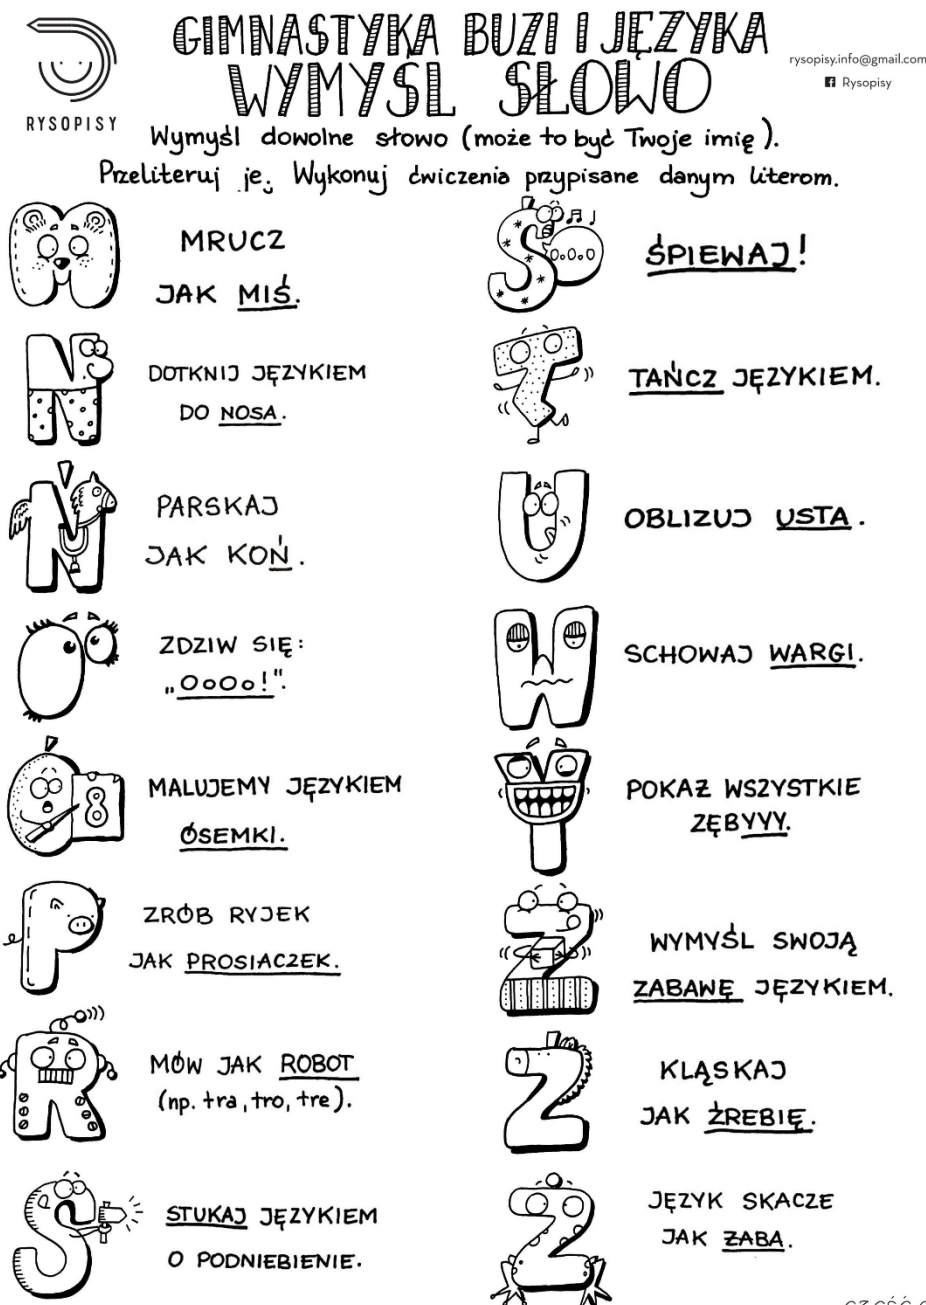 GIMNASTYKA BUZI I JĘZYKA
WYMYŚL SŁOWO
RYSOPISY
rysopisy.info@gmail.com
Rysopisy
Wymyśl dowolne słowo (może to być Twoje imię).
Przeliteruj je. Wykonuj ćwiczenia przypisane danym literom.
M
MRUCZ
JAK MIŚ.
N
DOTKNIJ JĘZYKIEM
DO NOSA.
Ń
PARSKAJ
JAK KOŃ.
O
ZDZIW SIĘ:
„OoOo!".
Ó
8
MALUJEMY JĘZYKIEM
ÓSEMKI.
P
ZRÓB RYJEK
JAK PROSIACZEK.
R
MÓW JAK ROBOT
(np. tra, tro, tre).
S
STUKAJ JĘZYKIEM
O PODNIEBIENIE.
Ś
o.o.o.o
ŚPIEWAJ!
T
TAŃCZ JĘZYKIEM.
U
OBLIZUJ USTA.
W
SCHOWAJ WARGI.
Y
POKAŻ WSZYSTKIE
ZĘBYYY.
Z
WYMYŚL SWOJĄ
ZABAWĘ JĘZYKIEM.
Ź
KLĄSKAJ
JAK ŹREBIĘ.
Ż
JĘZYK SKACZE
JAK ŻABA.